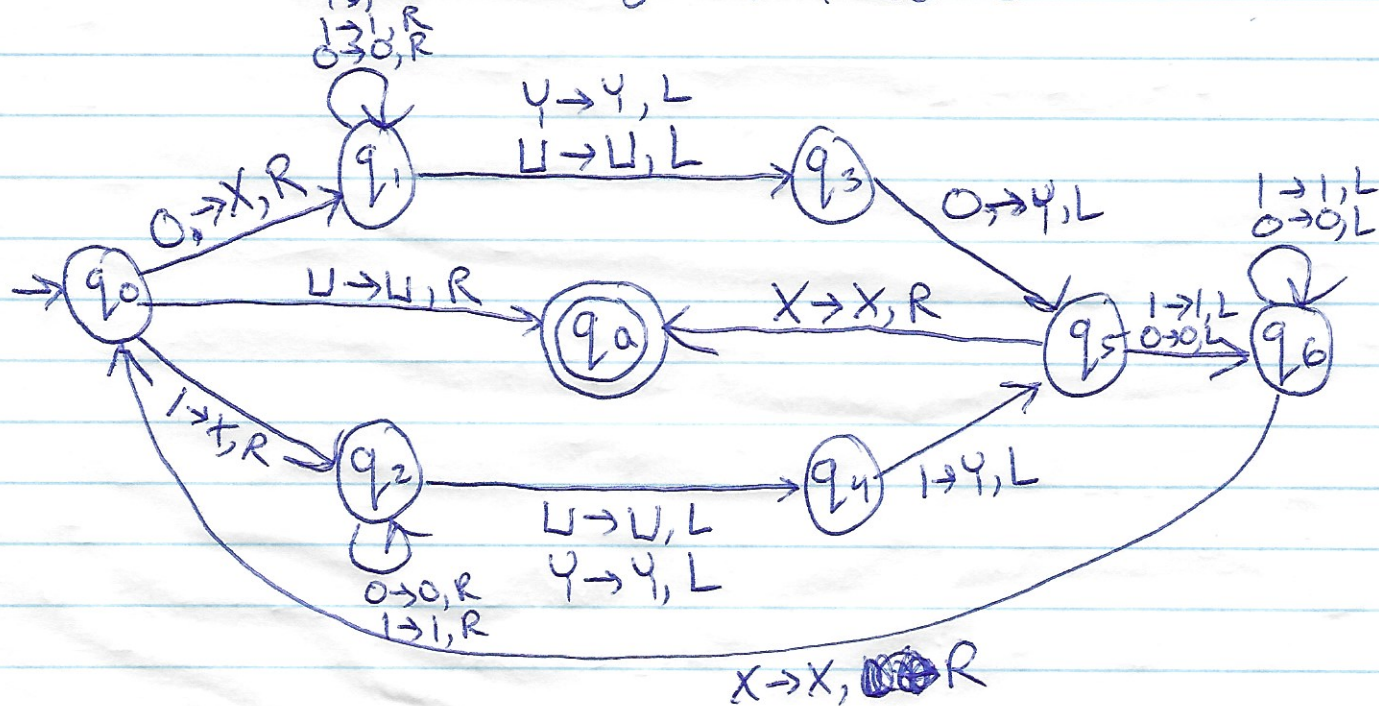 1→1, R
0→0, R
Y→Y, L
⊔→⊔, L
q1
q3
0→X, R
0→Y, L
1→1, L
0→0, L
q0
⊔→⊔, R
qa
X→X, R
q5
1→1, L
0→0, L
q6
1→X, R
q2
q4
1→Y, L
⊔→⊔, L
Y→Y, L
0→0, R
1→1, R
X→X, R